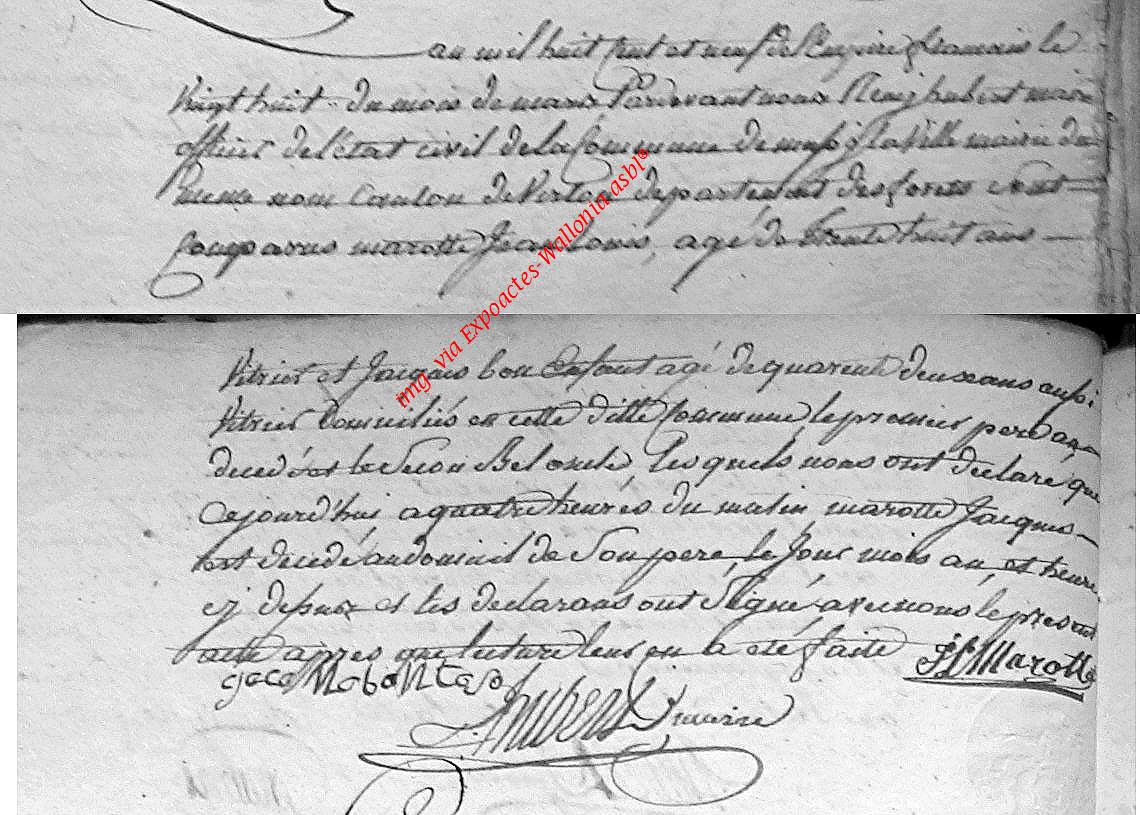 an mil huit cent et neuf de l'Empire francais le
Vingt huit du mois de mars Pardevant nous Remy hubert maire
officier de l'état civil de la Commune de mussy la Ville mairie du
meme nom Canton de Virton departement des forets sont
Comparus marotte Jean Louis, agé de trente huit ans
img via Expoactes-Wallonia asbl®
Vitrier et Jacques bon Enfant agé de quarente deux ans aussi
Vitrier Domiciliés en cette ditte Commune le premier pere au
decedé et le Second Bel oncle, lesquels nous ont declaré que
cejourd'hui a quatre heures du matin marotte Jacques
est decedé au domicil de Son pere, le Jour mois an, et heure
cy dessus et les declarans ont Signé avec nous le present
acte apres que lecture leur en a été faite JL Marotte
Hubert maire